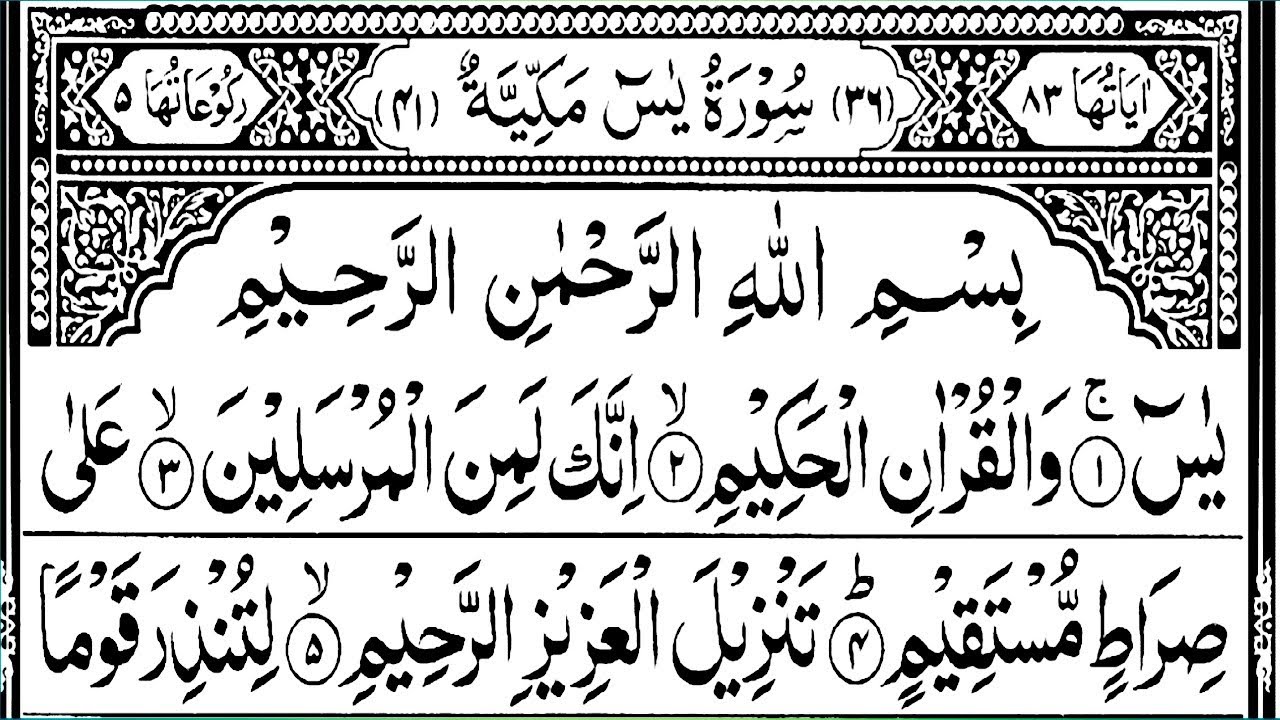 اٰيَاتُهَا ٨٣ (٣٦) سُوْرَةُ يٰسٓ مَكِّيَّةٌ (٤١) رُكُوْعَاتُهَا ٥
بِسْمِ اللّٰهِ الرَّحْمٰنِ الرَّحِيْمِ
يٰسٓ ۚ ١ وَالْقُرْاٰنِ الْحَكِيْمِ ۙ ٢ اِنَّكَ لَمِنَ الْمُرْسَلِيْنَ ۙ ٣ عَلٰى
صِرَاطٍ مُّسْتَقِيْمٍ ؕ ۴ تَنْزِيْلَ الْعَزِيْزِ الرَّحِيْمِ ۙ ۵ لِتُنْذِرَ قَوْمًا